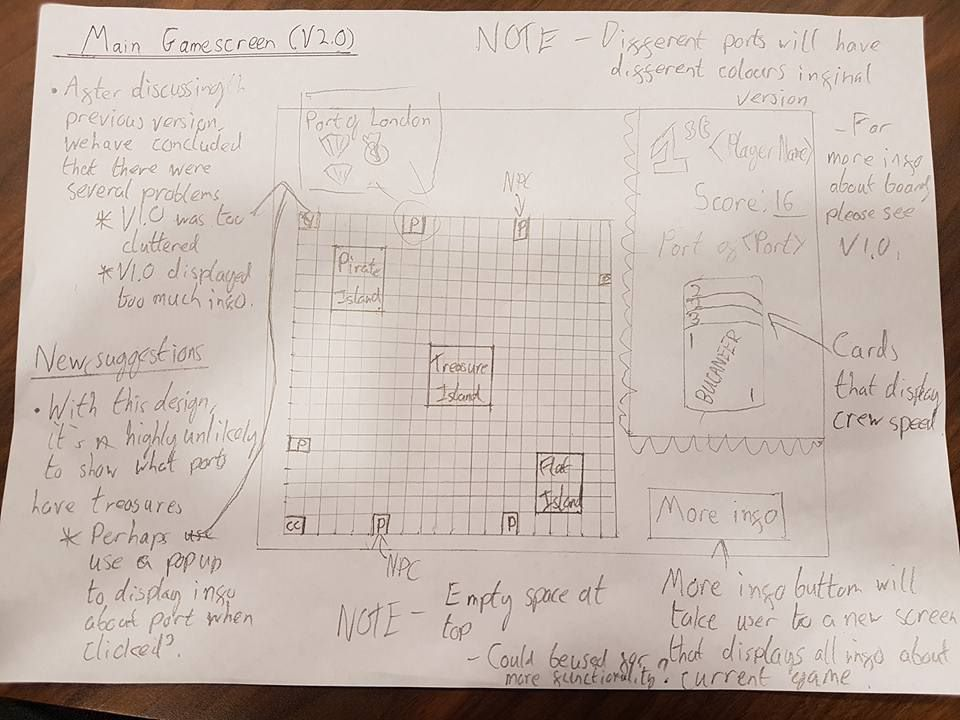 Main Gamescreen (V2.0)
NOTE - Different ports will have
different colours in final
version
• After discussing
previous version,
we have concluded
that there were
several problems
* V1.0 was too
cluttered
* V1.0 displayed
too much info.
New suggestions
• With this design,
it's highly unlikely
to show what ports
have treasures
* Perhaps
use a popup
to display info
about port when
clicked?
Port of London
NPC
P
P
P
Pirate
Island
Treasure
Island
P
Flat
Island
CC
P
P
NPC
<Player Name>
Score: 16
Port of <Port>
2
3
1
BUCANEER
1
- For
more info
about board
please see
V1.0.
Cards
that display
crew speed
More info
NOTE - Empty space at
top
- Could be used for
more functionality?
More info button will
take user to a new screen
that displays all info about
current game.